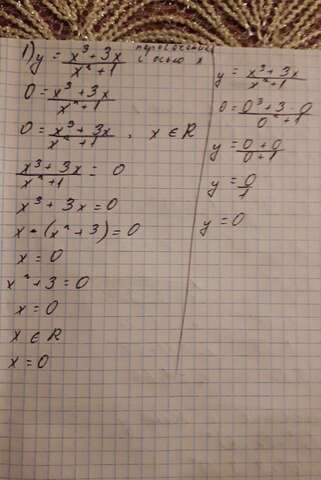 1) y = (x³ + 3x)/(x² + 1) пересечение с осью x
0 = (x³ + 3x)/(x² + 1)
0 = (x³ + 3x)/(x² + 1), x ∈ R
(x³ + 3x)/(x² + 1) = 0
x³ + 3x = 0
x · (x² + 3) = 0
x = 0
x² + 3 = 0
x = 0
x ∈ R
x = 0
y = (x³ + 3x)/(x² + 1)
0 = (0³ + 3 · 0)/(0² + 1)
y = (0 + 0)/(0 + 1)
y = 0/1
y = 0